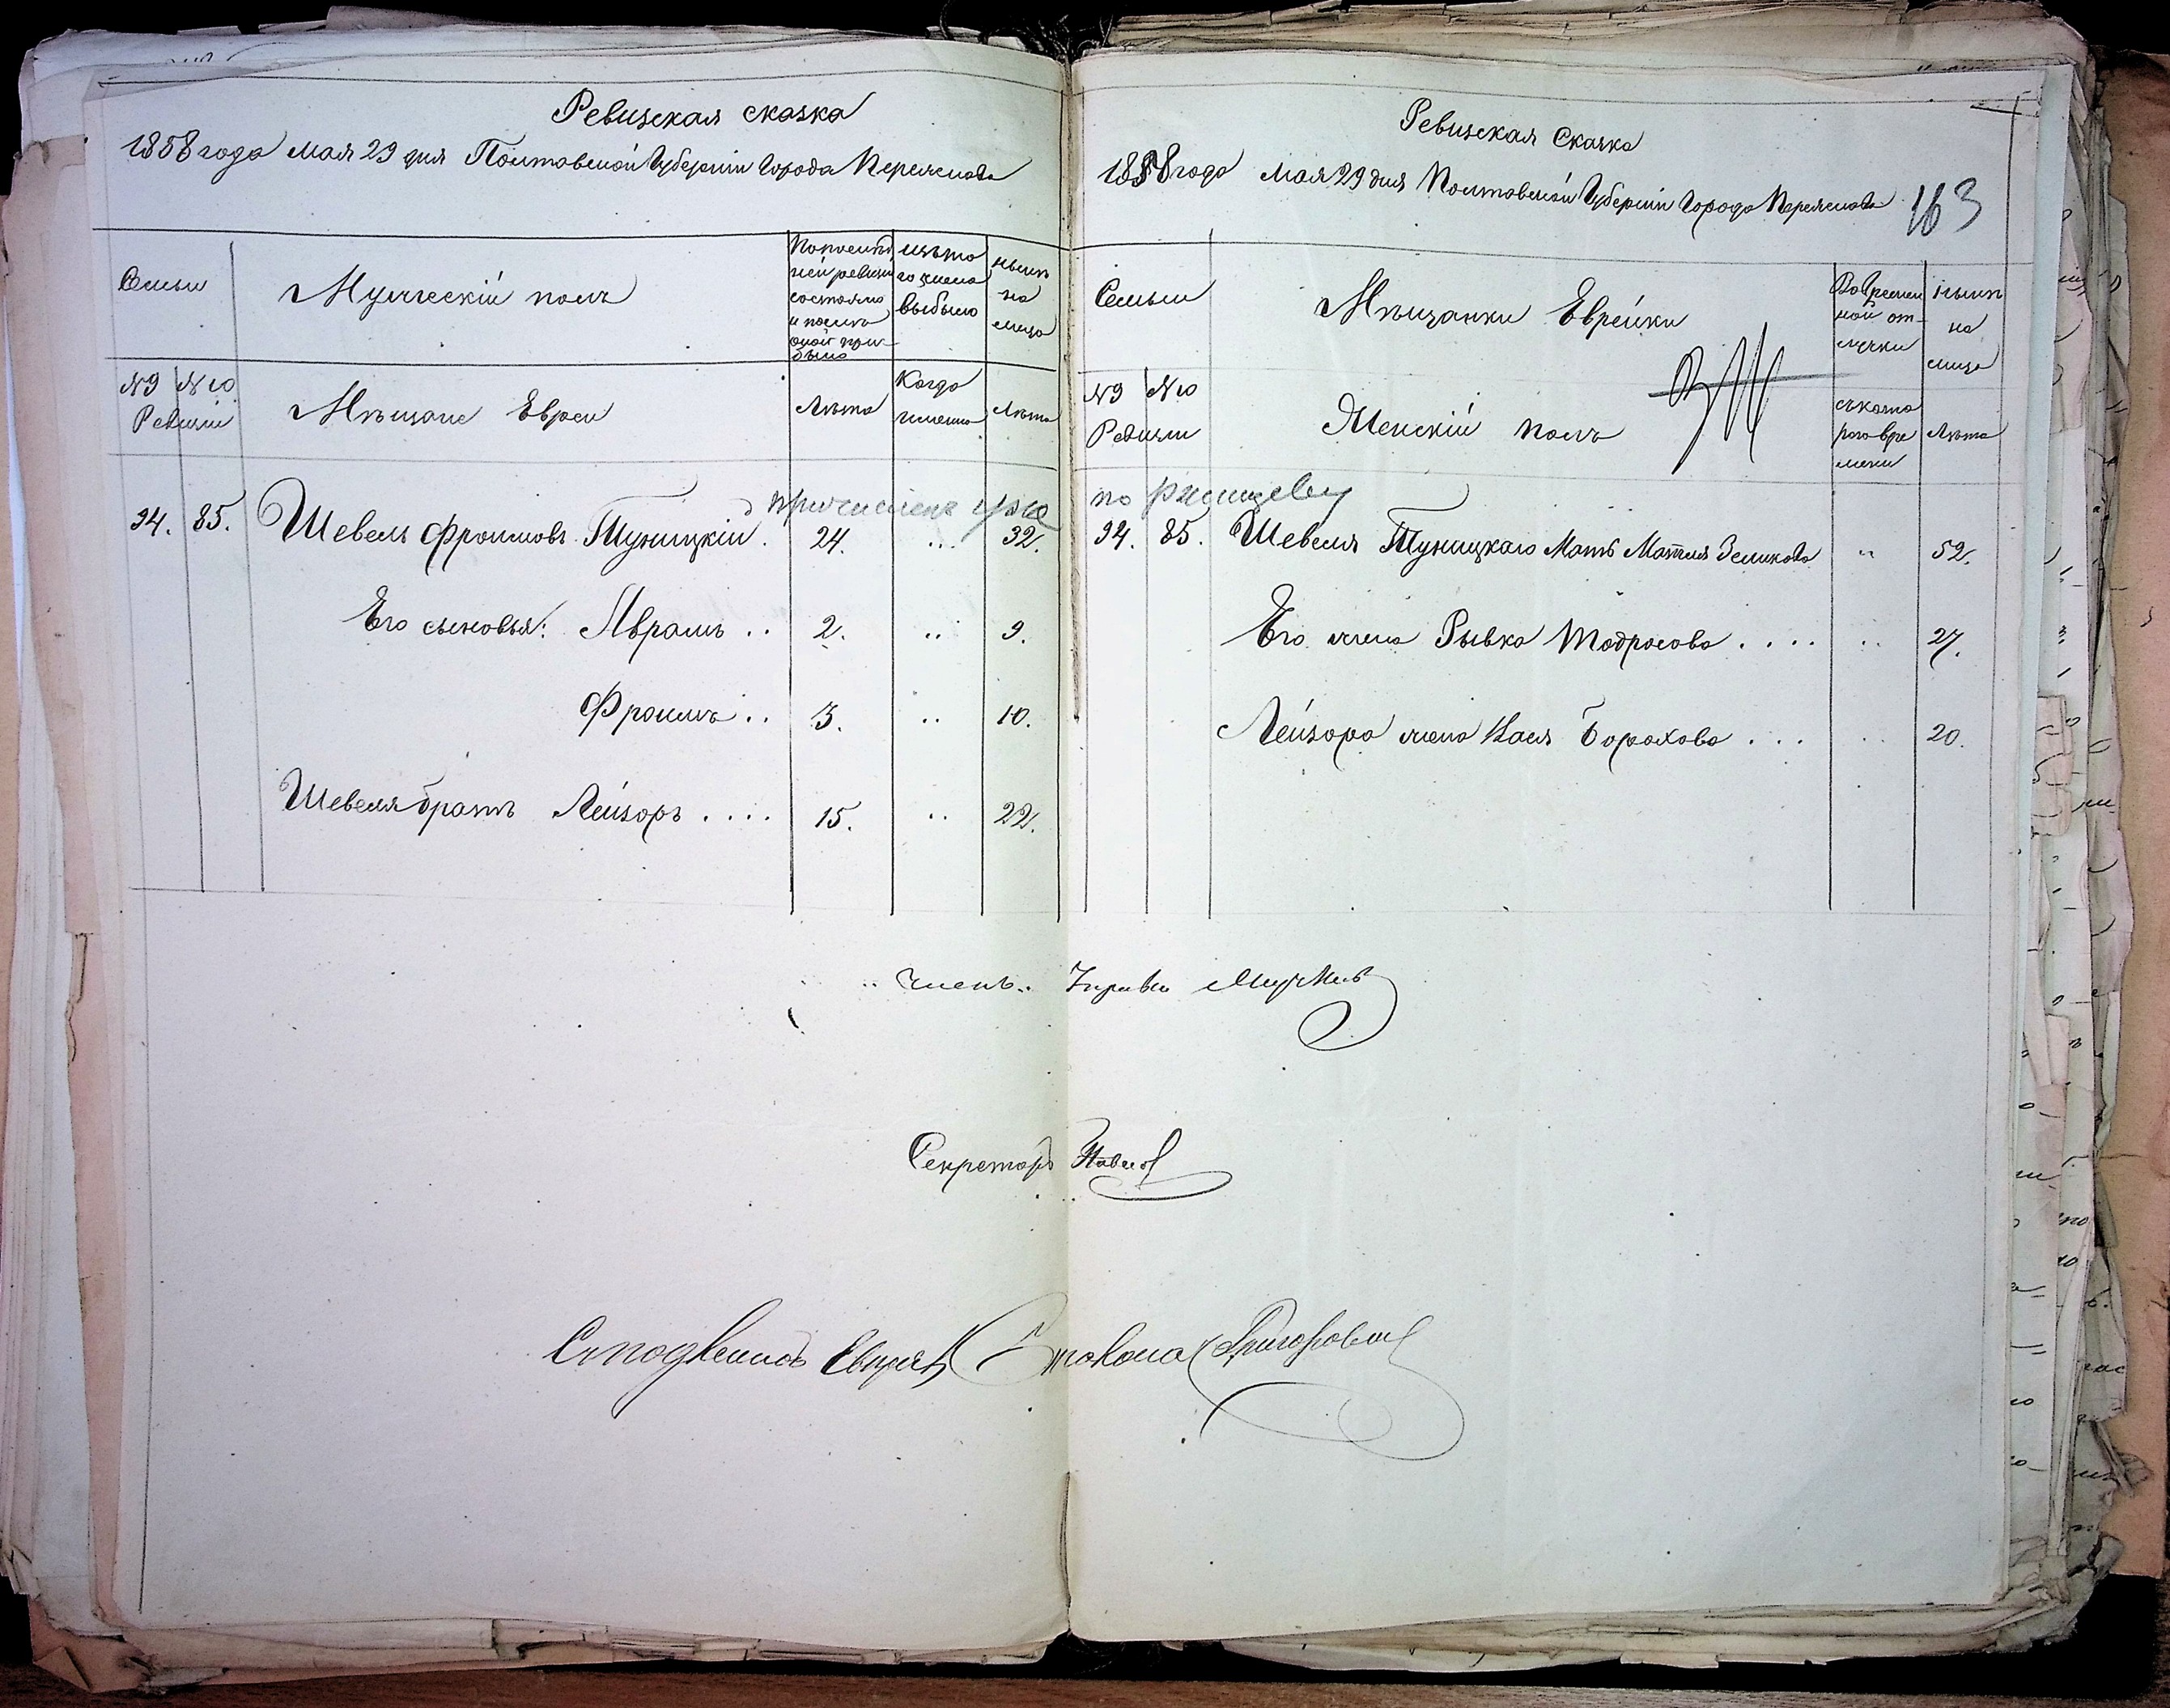 Ревизская сказка
1858 года мая 29 дня Полтавской Губернии Города Переяслава
Семьи
Мужескій полъ
По последней ревизіи состояло и после оной прибыло
изъ того числа выбыло
ныне на лицо
№ 9 № 10
Ревизіи
Мѣщане Евреи
Лѣта
Когда именно
Лѣта
94. 85. Шевель Фроимовъ Туницкій . 24. ... 32.
причисленъ
Его сыновья: Аврамъ .. 2. .. 9.
Фроимъ .. 3. .. 10.
Шевеля братъ Лейзоръ .... 15. .. 22.
Ревизская Сказка
1858 года мая 29 дня Полтавской Губерніи Города Переяслава
163
Семьи
Мѣщанки Еврейки
Во временной отлучке
Ныне на лицо
№ 9 № 10
Ревизіи
Женскій полъ
съ котораго времени
Лѣта
по
94. 85. Шевеля Туницкаго Мать Матля Зеликова .. 52.
Его жена Рывка Тодросова .... .. 27.
Лейзора жена Хася Борохова ... .. 20.
Членъ Управы
Секретарь Павлов
Евреевъ Григорович